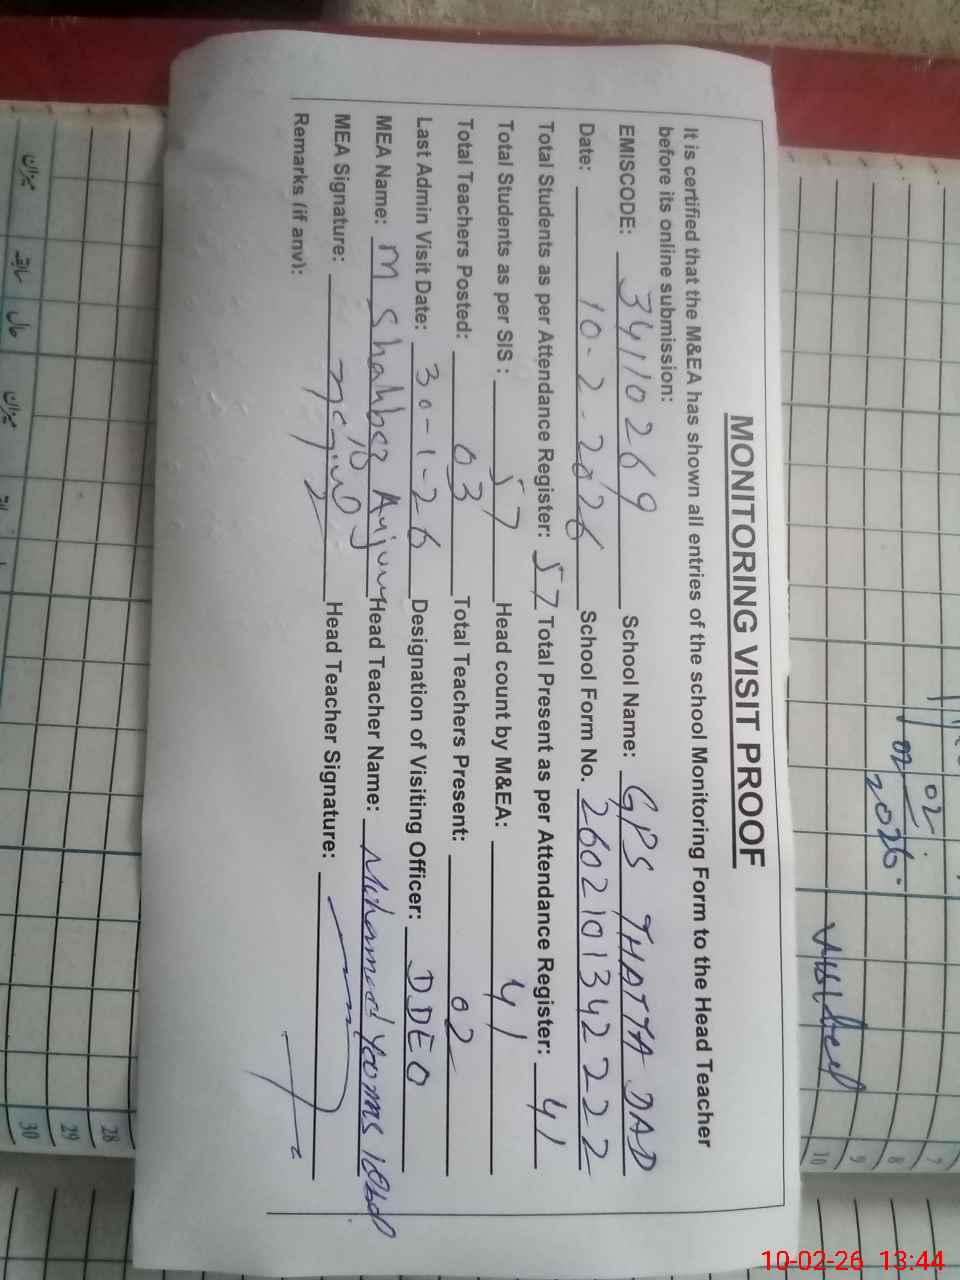 MONITORING VISIT PROOF
It is certified that the M&EA has shown all entries of the school Monitoring Form to the Head Teacher
before its online submission:
EMISCODE: 34110269 School Name: GPS THATTA DAD
Date: 10-2-2026 School Form No. 2602101342222
Total Students as per Attendance Register: 57 Total Present as per Attendance Register: 41
Total Students as per SIS : 57 Head count by M&EA: 41
Total Teachers Posted: 03 Total Teachers Present: 02
Last Admin Visit Date: 30-1-26 Designation of Visiting Officer: DDEO
MEA Name: M Shahbaz Anjum Head Teacher Name: Muhammad
MEA Signature: Head Teacher Signature:
Remarks (if any):
02
02
2026
visited
7
8
9
10
28
29
30
میزان
سابقہ
حال
میزان
10-02-26 13:44